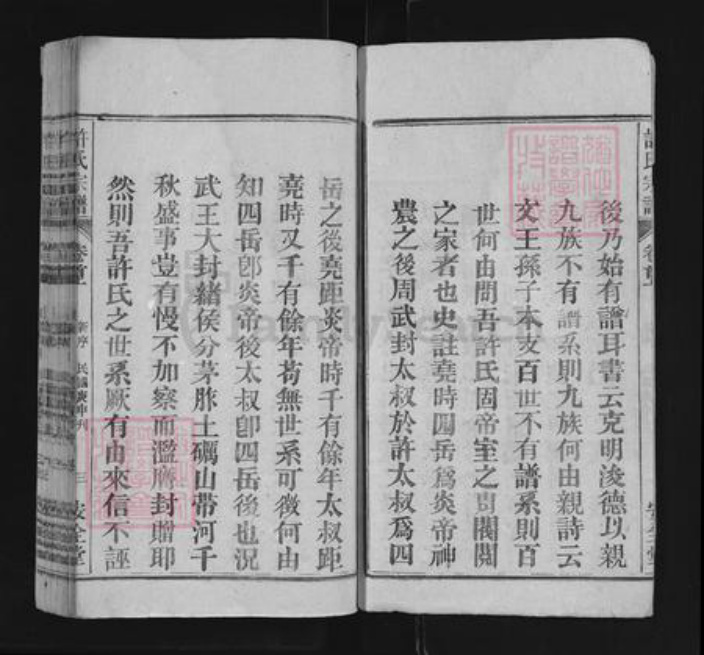 許氏宗譜 卷首
後乃始有譜耳書云克明浚德以親
九族不有譜系則九族何由親詩云
文王孫子本支百世不有譜系則百
世何由問吾許氏固帝室之胄閥閱
之家者也史註堯時四岳爲炎帝神
農之後周武封太叔於許太叔爲四
岳之後堯距炎帝時千有餘年太叔距
堯時又千有餘年苟無世系可徵何由
知四岳卽炎帝後太叔卽四岳後也況
武王大封諸侯分茅胙土礪山帶河千
秋盛事豈有慢不加察而濫膺封贈耶
然則吾許氏之世系厥有由來信不誣
許氏宗譜 卷首 新序 民國庚申刊 三
FamilySearch